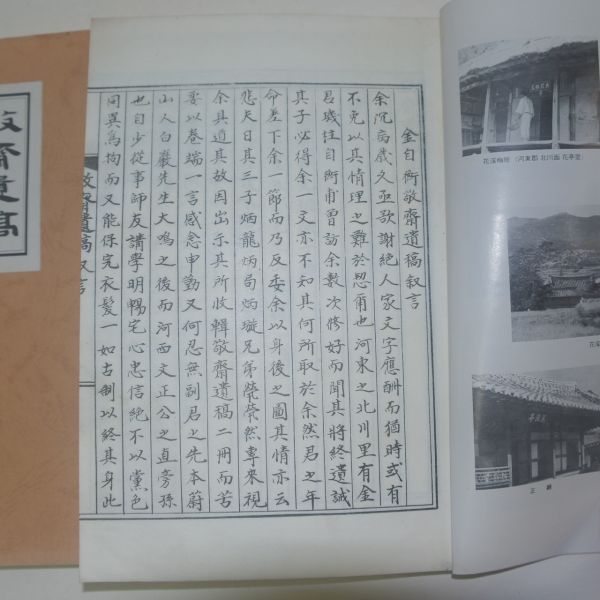 金自衡敬齋遺稿叙言
余沉高歲久亟欲謝絕人家文字應酬而猶時或有
不免以其情理之難於恝爾也河東之北川里有金
君璣往自衡甫曾訪余數次修好而聞其將終遺誡
其子必得余一文亦不知其何所取於余然君之年
命差下余一節而乃反委余以身後之圖其情亦云
悲矣日其三子炳龍炳局炳璇兄弟煢煢然專來視
余具道其故因出示其所收輯敬齋遺稿二冊而苦
要以卷端一言感念申勤又何忍無副君之先本蔚
山人白巖先生大鳴之後而河西文正公之直旁孫
也自少從事師友講學明暢宅心忠信絕不以黨色
同異爲拘而又能保完衣髮一如古制以終其身此
敬齋遺稿 叙言
敬齋遺稿
花溪精舍 (河東郡 北川面 花亭里)
正面